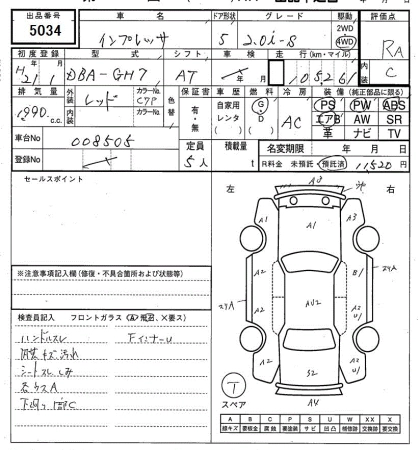 出品番号 車名 ドア形状 グレード 駆動 評価点
5034 インプレッサ 5 2.0i-S 2WD 4WD RA
初度登録 型式 シフト 車検 走行(km・マイル) 内装 C
H21 1 DBA-GH7 AT 年 月 105261
排気量 外装 レッド カラーNo. C7P 色替 保証書 車歴 燃料 冷房 装備(純正部品に限る)
1990 c.c. 内装 カラーNo. 有・無 自家用 レンタ ( ) G D ( ) AC PS PW ABS
エアB AW SR
革 ナビ TV
車台No 008505 定員 5人 積載量 t 名変期限 年 月 日
登録No R料金 未預託・預託済 11,520 円
セールスポイント
左 右
A3
A1 A1 A3
A2 B1
スリA AU2 スリA
A2 A2 U1
A2 S2 U1
A4
※注意事項記入欄(修復・不具合箇所および状態等)
検査員記入 フロントガラス(A飛石、×要ス)
ハンドルスレ Fインナーu
内装キズ汚れ
シートスレ しみ
下廻り
T
スペア
A B C P S U W XX X
線キズ 要板金 腐蝕 要塗装 サビ 凹凸 補修跡 交換跡 要交換